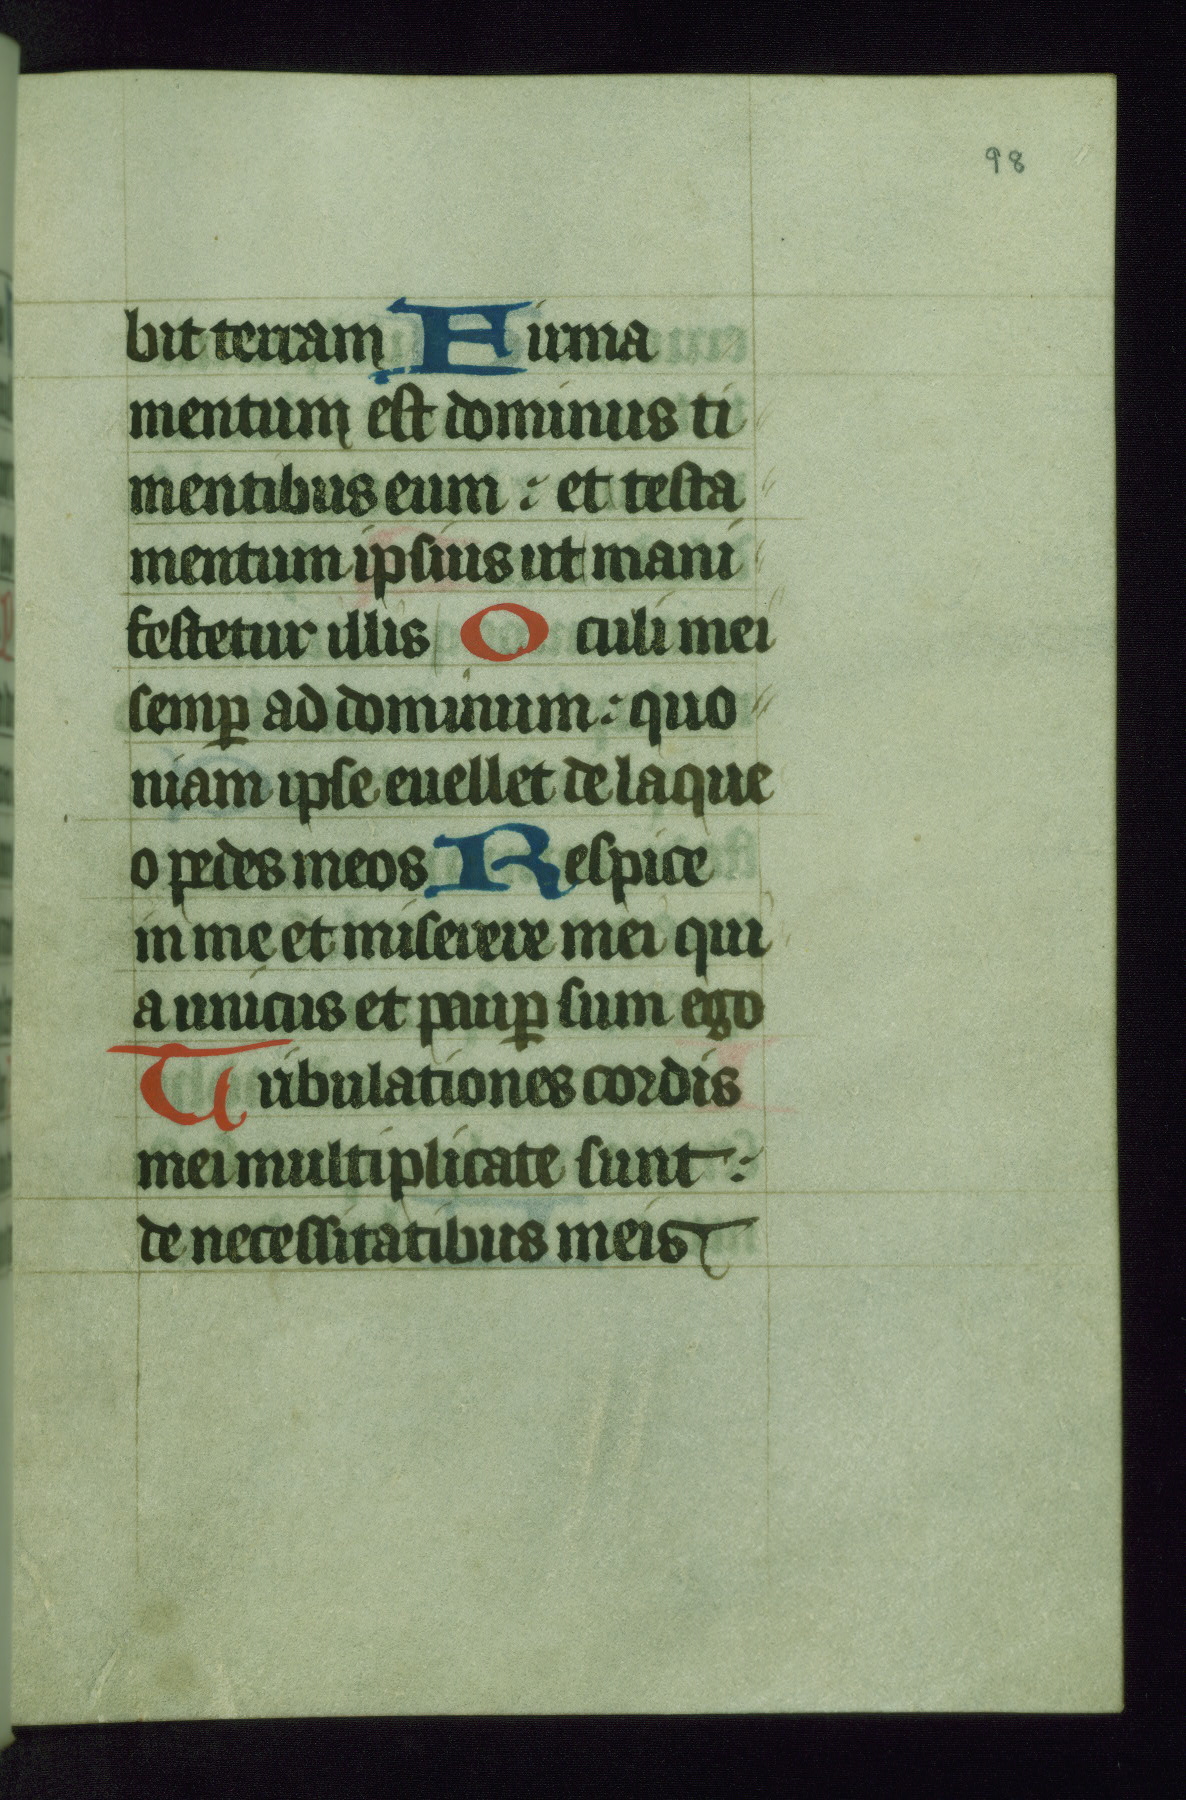 98
bit terram Firma
mentum est dominus ti
mentibus eum : et testa
mentum ipsius ut mani
festetur illis Oculi mei
semꝑ ad dominum : quo
niam ipse euellet de laque
o pedes meos Respice
in me et miserere mei qui
a unicus et pauꝑ sum ego
Tribulationes cordis
mei multiplicate sunt :
de necessitatibus meis